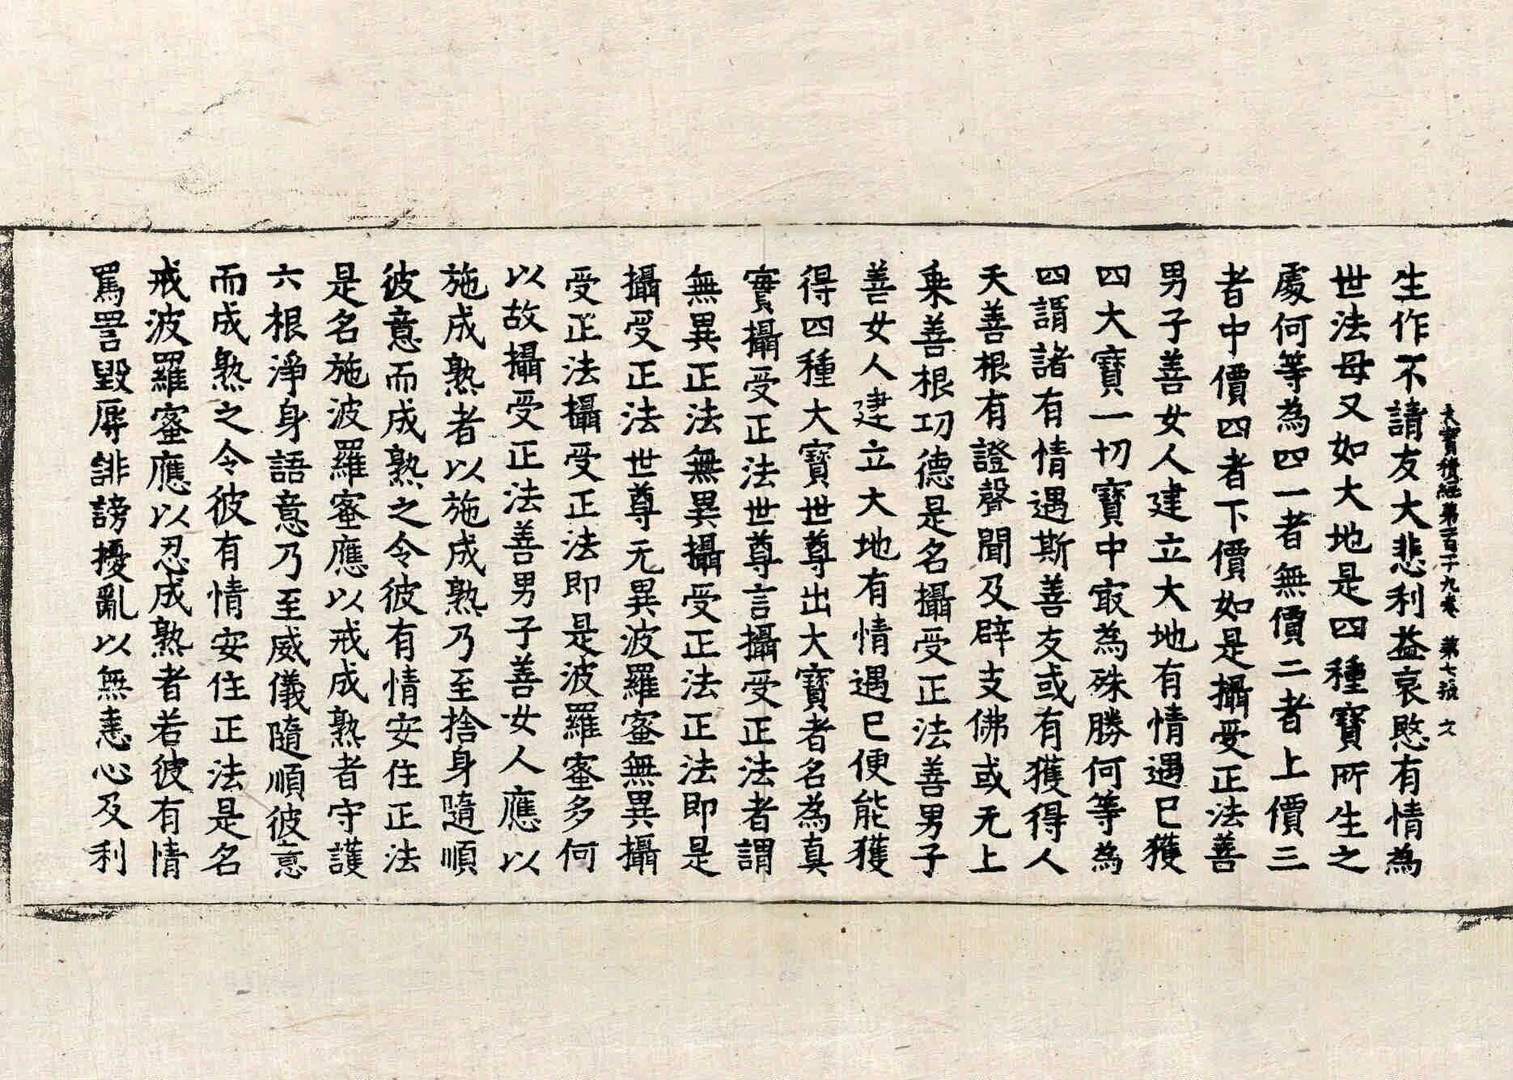 大寶積經第一百一十九卷　第七張　文
生作不請友大悲利益哀愍有情為
世法母又如大地是四種寶所生之
處何等為四一者無價二者上價三
者中價四者下價如是攝受正法善
男子善女人建立大地有情遇已獲
四大寶一切寶中㝡為殊勝何等為
四謂諸有情遇斯善友或有獲得人
天善根有證聲聞及辟支佛或无上
乗善根功德是名攝受正法善男子
善女人建立大地有情遇已便能獲
得四種大寶世尊出大寶者名為真
實攝受正法世尊言攝受正法者謂
無異正法無異攝受正法正法即是
攝受正法世尊无異波羅蜜無異攝
受正法攝受正法即是波羅蜜多何
以故攝受正法善男子善女人應以
施成熟者以施成熟乃至捨身隨順
彼意而成熟之令彼有情安住正法
是名施波羅蜜應以戒成熟者守護
六根淨身語意乃至威儀隨順彼意
而成熟之令彼有情安住正法是名
戒波羅蜜應以忍成熟者若彼有情
罵詈毀辱誹謗擾亂以無恚心及利